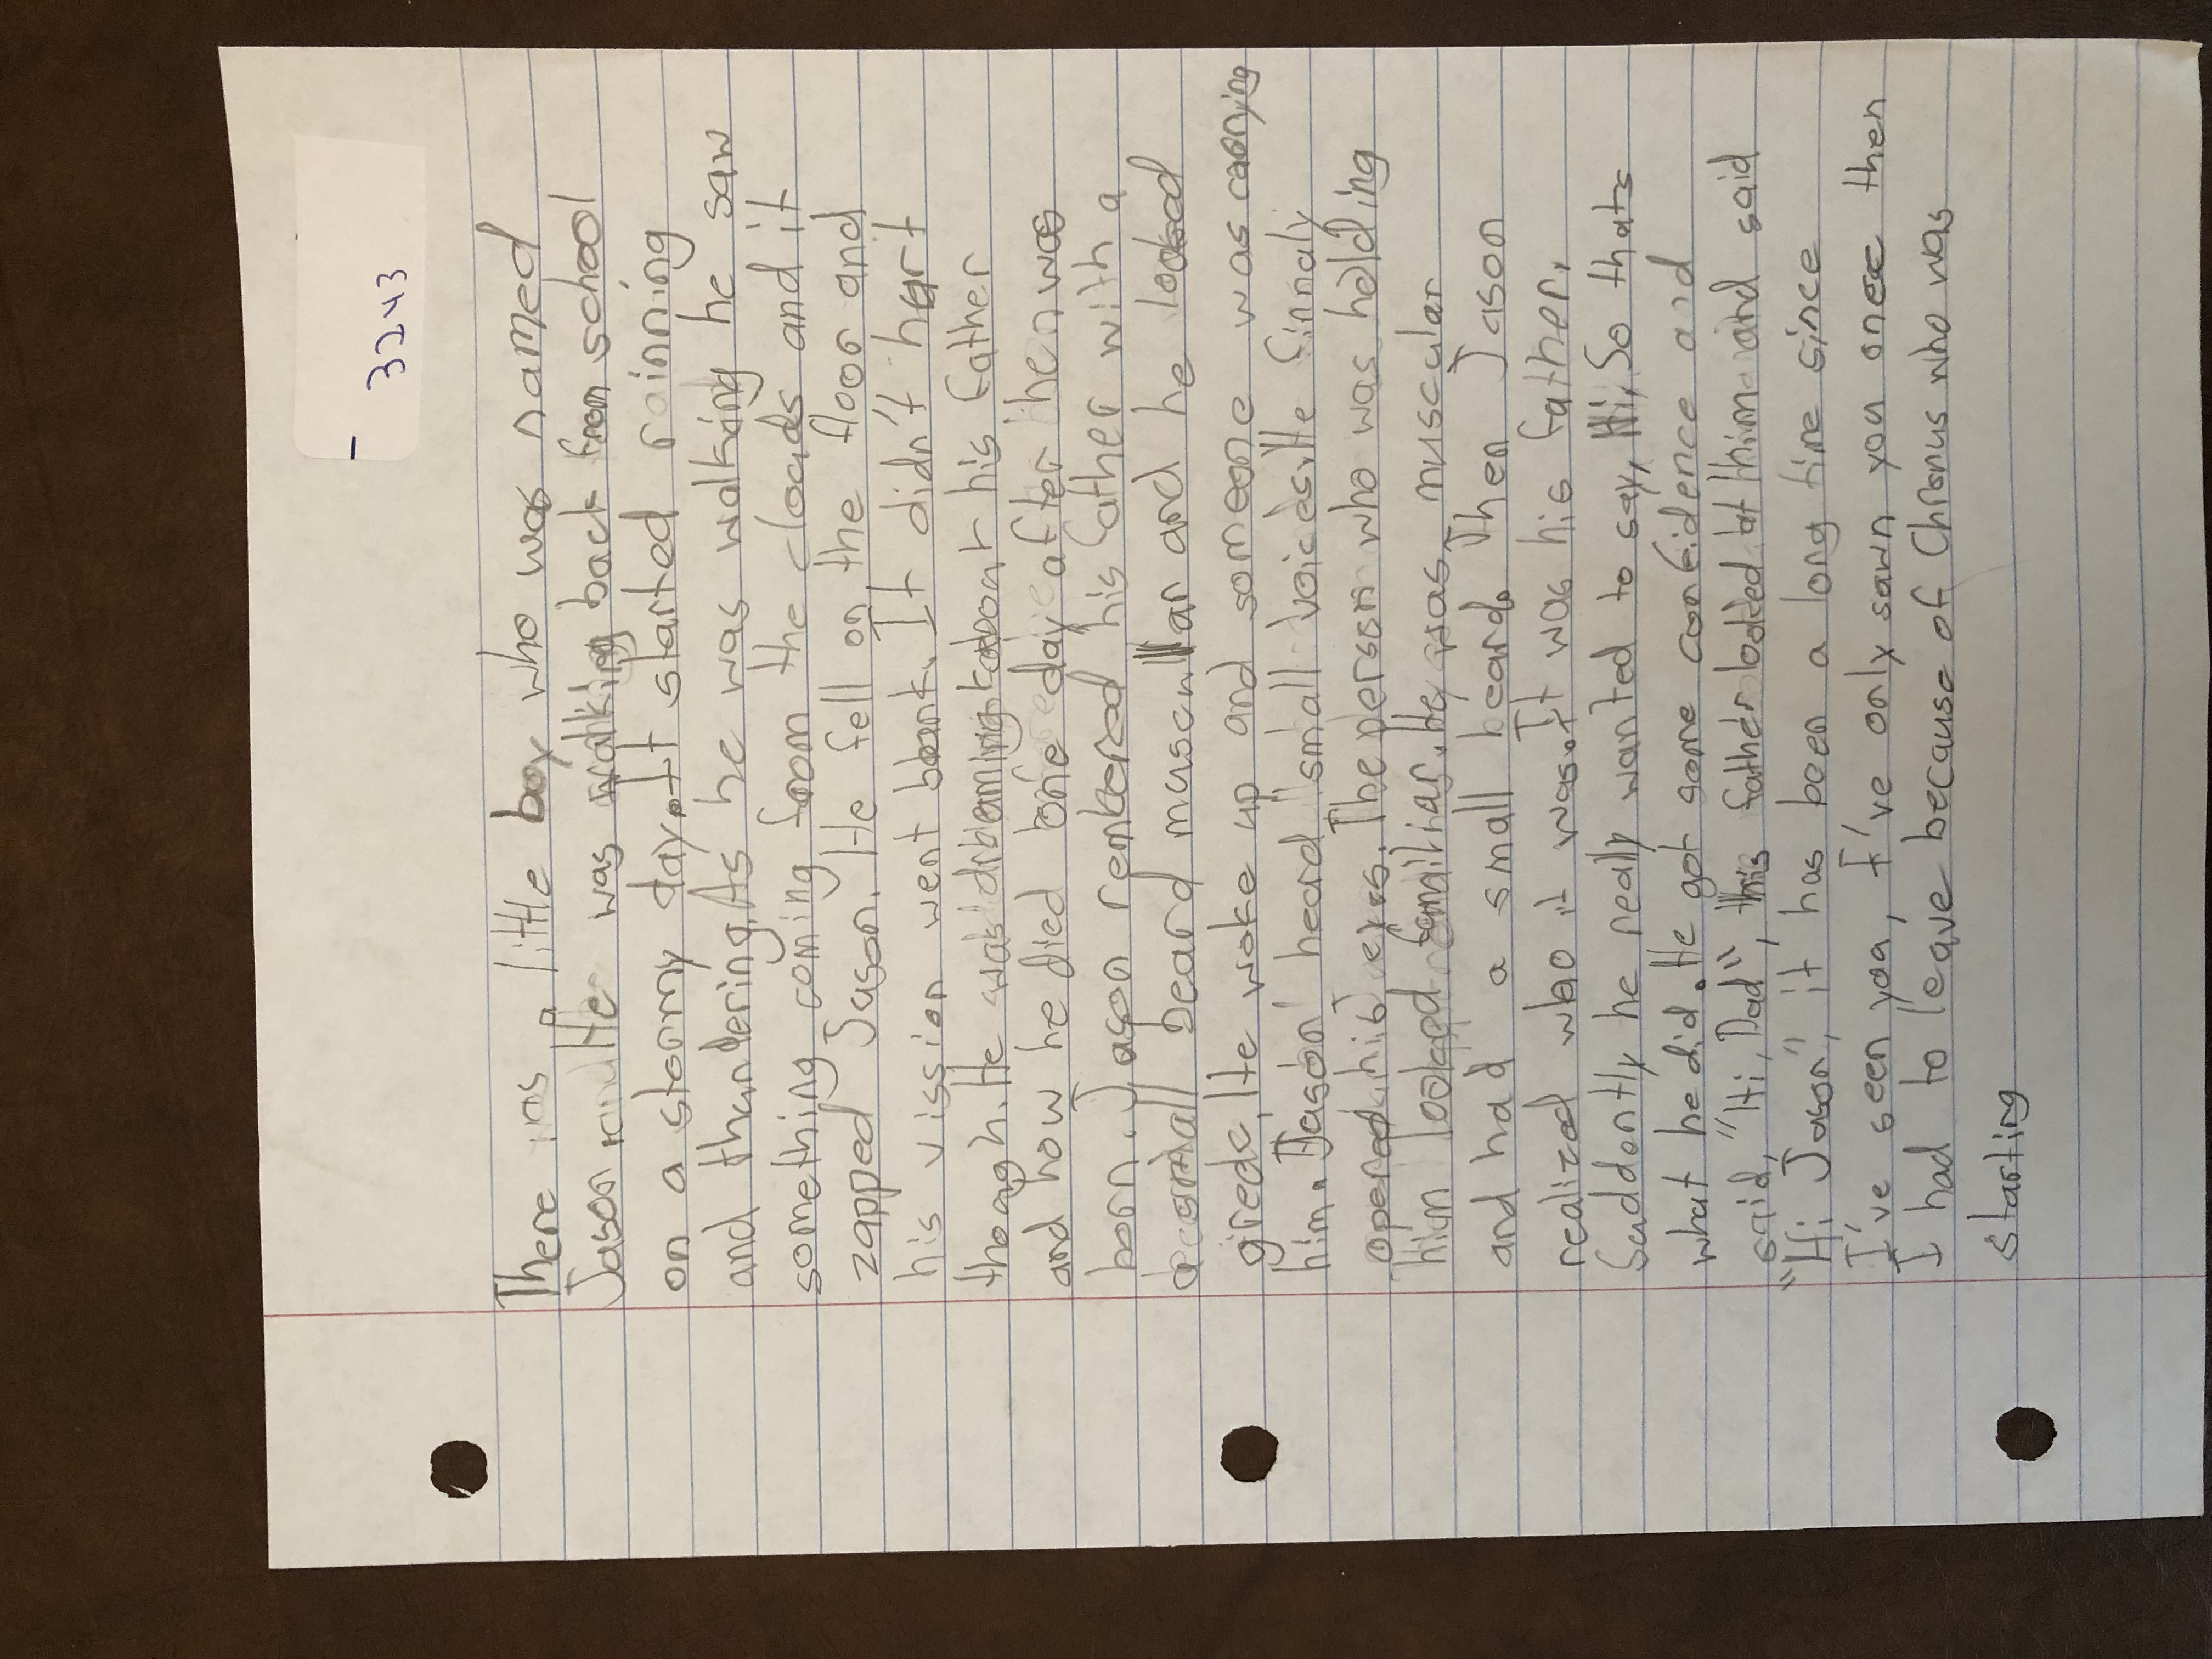 3243
There was a little boy who was named
Jason He was walking back from school
on a stormy day. It started rainning
and thundering. As he was walking he saw
something coming from the clouds and it
zapped Jason. He fell on the floor and
his vission went blank. It didn't hurt
though. He was dreaming about his father
and how he died one day after he was
born. Jason rembered his father with a
small beard muscullar and he looked
He woke up and someone was carrying
him. Jason heard small voices. He finnaly
opened his eyes. The person who was holding
him looked familiar. He was muscular
and had a small beard. Then Jason
realized who it was. It was his father.
Suddently he really wanted to say, Hi, So thats
what he did. He got some confidence and
said, "Hi, Dad", his father looked at him and said
"Hi Jason", it has been a long time since
I've seen you, I've only sawn you once then
I had to leave because of Chronus who was
starting